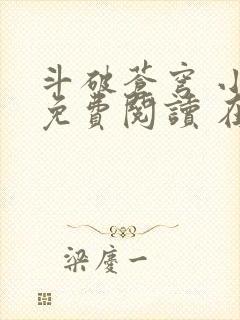 斗破蒼穹 小
免費閱讀 在
梁慶一